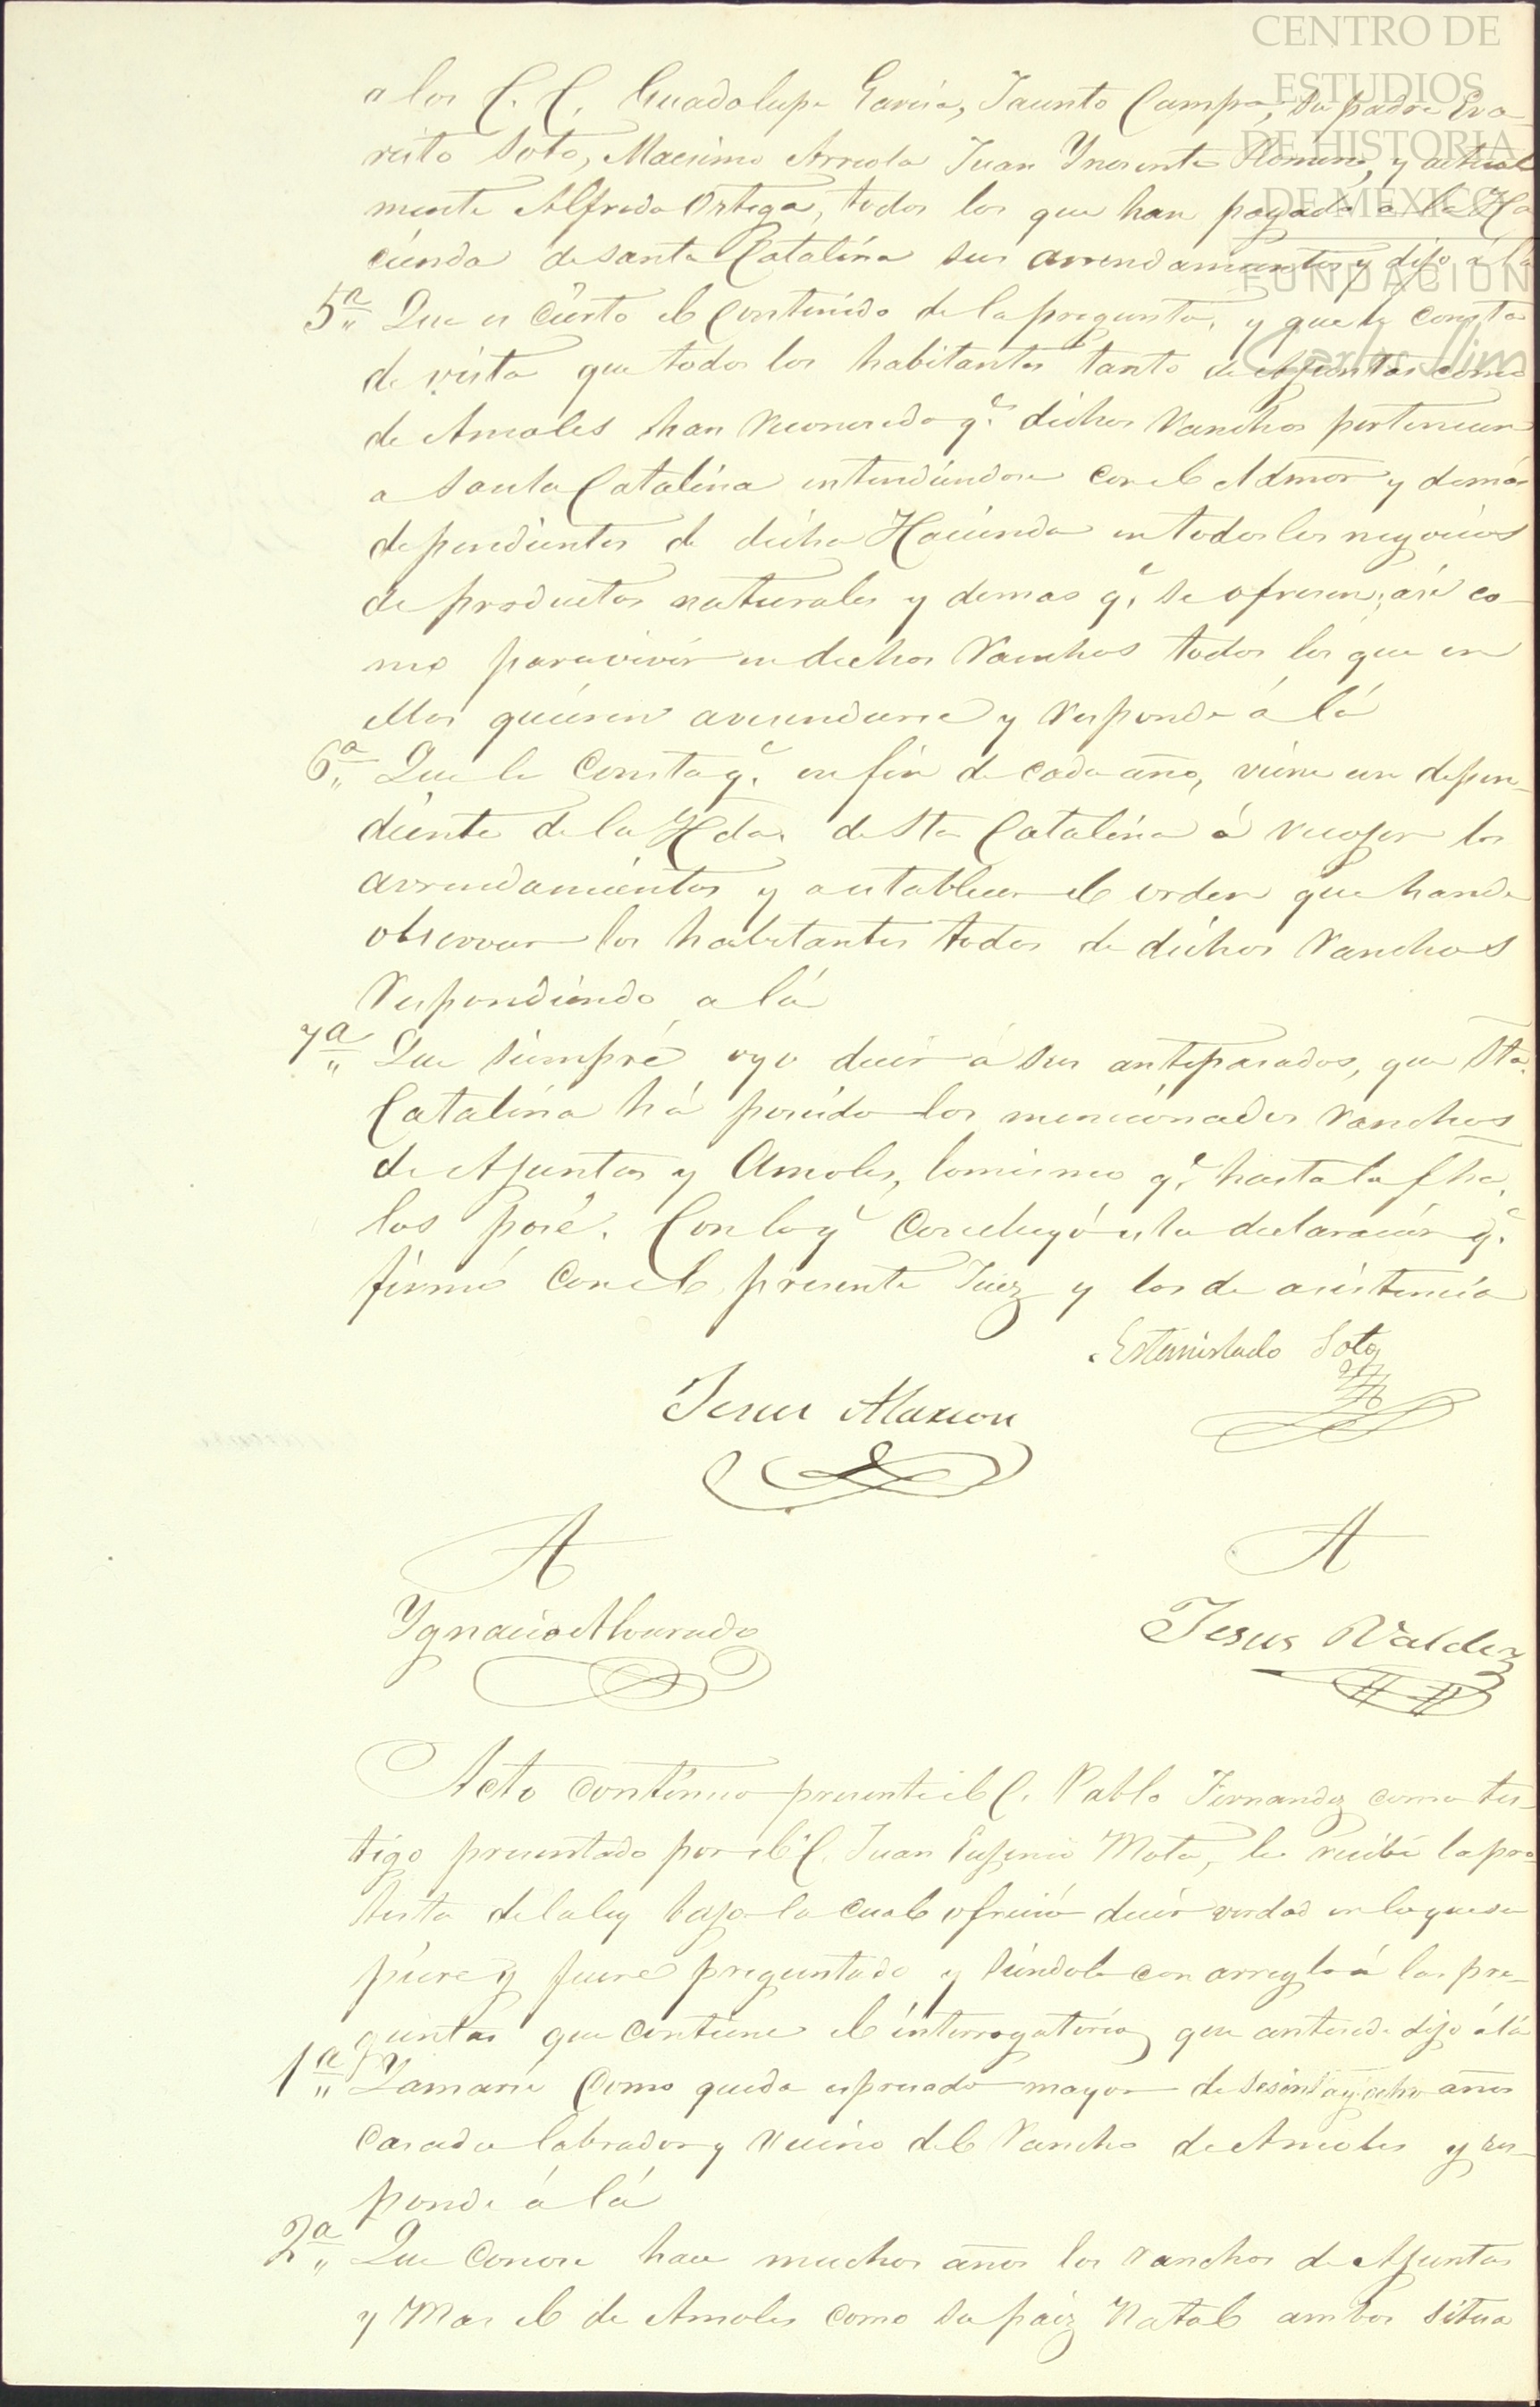 CENTRO DE
ESTUDIOS
DE HISTORIA
DE MEXICO
FUNDACION
Carlos Slim
a los C. C. Guadalupe Garcia, Jacinto Campa, su padre Eva-
risto Soto, Macsimo Arreola Juan Ynocente Romero, y actual
mente Alfredo Ortega, todos los que han pagado a la Ha
cienda de santa Catalina sus arrendamientos y dijo á la
5ª Que es cierto el Contenido de la pregunta, y que le consta
de vista que todos los habitantes tanto de Ajuntas como
de Amoles han reconocido q.e dichos Ranchos pertenecen
a Santa Catalina entendiendose con el Admor y demás
dependientes de dicha Hacienda en todos los negocios
de productos naturales y demas q.e se ofrecen; asi co-
mo para vivir en dichos Ranchos todos los que en
ellos quieren avecindarse y responde á lá
6ª Que le Consta q.e en fin de cada año, viene un depen-
diente de la Hda. de Sta Catalina á recojer los
arrendamientos y a establecer el orden que han de
observar los habitantes todos de dichos Ranchos
Respondiendo a lá
7ª Que siempre oyo decir á sus antepasados, que Sta.
Catalina há poseido los mencionados Ranchos
de Ajuntas y Amoles, lo mismo q.e hasta la fha.
los posé. Con lo q.e Concluyó esta declaracion q.e
firmó Con el presente Juez y los de asistencia
Estanislado Soto
Jesus Alarcon
A
A
Ygnacio Alvarado
Jesus Valdez
Acto contínuo presente el C. Pablo Fernandez como tes-
tigo presentado por el C. Juan Eujenio Mota, le recibí la pro
testa de la ley bajo la cual ofreció decir verdad en lo que su
piere y fuere preguntado y siendolo con arreglo á las pre-
guntas que contiene el interrogatorio que antecede dijo á lá
1ª Llamarse Como queda espresado mayor de sesenta y ocho años
Casado labrador y vecino del Rancho de Amoles y res-
ponde á lá
2ª Que Conoce hace muchos años los ranchos de Ajuntas
y Mas el de Amoles como su paiz Natal ambos situa